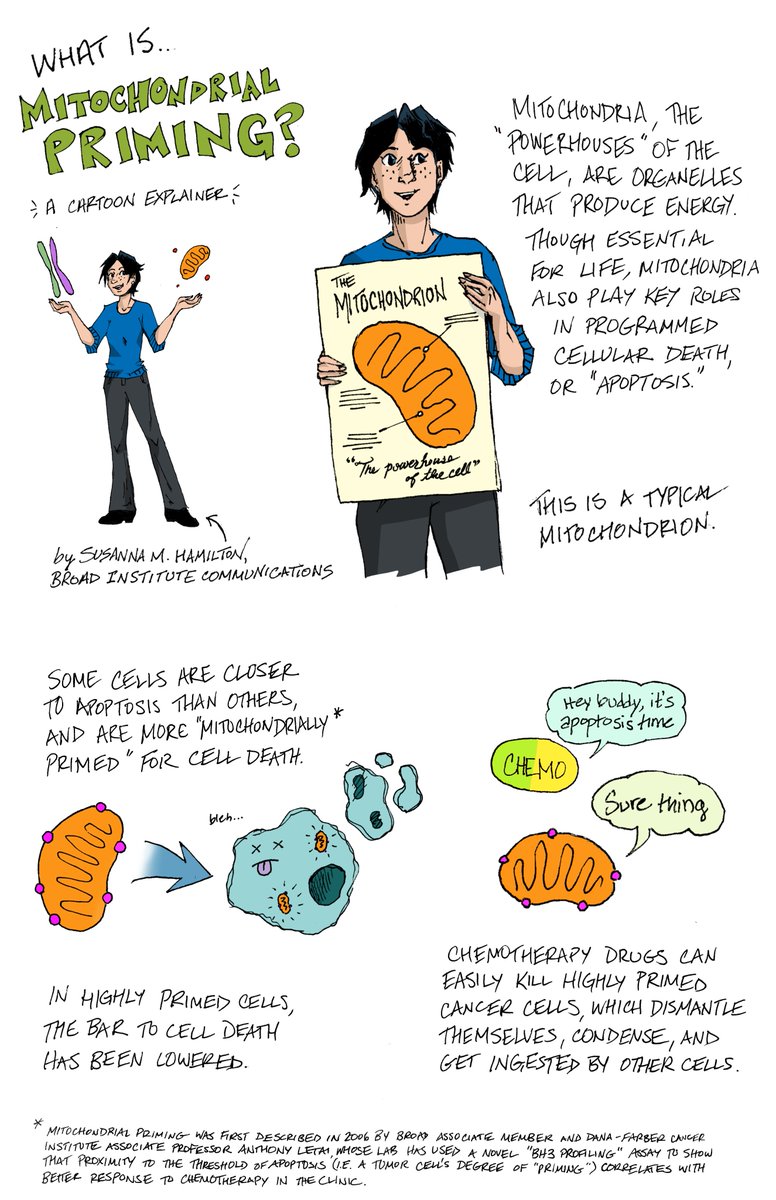 WHAT IS...
MITOCHONDRIAL
PRIMING?
A CARTOON EXPLAINER
by SUSANNA M. HAMILTON,
BROAD INSTITUTE COMMUNICATIONS
THE
MITOCHONDRION
"The powerhouse
of the cell"
MITOCHONDRIA, THE
"POWERHOUSES" OF THE
CELL, ARE ORGANELLES
THAT PRODUCE ENERGY.
THOUGH ESSENTIAL
FOR LIFE, MITOCHONDRIA
ALSO PLAY KEY ROLES
IN PROGRAMMED
CELLULAR DEATH,
OR "APOPTOSIS."
THIS IS A TYPICAL
MITOCHONDRION.
SOME CELLS ARE CLOSER
TO APOPTOSIS THAN OTHERS,
AND ARE MORE "MITOCHONDRIALLY*
PRIMED" FOR CELL DEATH.
bleh...
IN HIGHLY PRIMED CELLS,
THE BAR TO CELL DEATH
HAS BEEN LOWERED.
Hey buddy, it's
apoptosis time
CHEMO
Sure thing
CHEMOTHERAPY DRUGS CAN
EASILY KILL HIGHLY PRIMED
CANCER CELLS, WHICH DISMANTLE
THEMSELVES, CONDENSE, AND
GET INGESTED BY OTHER CELLS.
* MITOCHONDRIAL PRIMING WAS FIRST DESCRIBED IN 2006 BY BROAD ASSOCIATE MEMBER AND DANA-FARBER CANCER
INSTITUTE ASSOCIATE PROFESSOR ANTHONY LETAI, WHOSE LAB HAS USED A NOVEL "BH3 PROFILING" ASSAY TO SHOW
THAT PROXIMITY TO THE THRESHOLD OF APOPTOSIS (I.E. A TUMOR CELL'S DEGREE OF "PRIMING") CORRELATES WITH
BETTER RESPONSE TO CHEMOTHERAPY IN THE CLINIC.